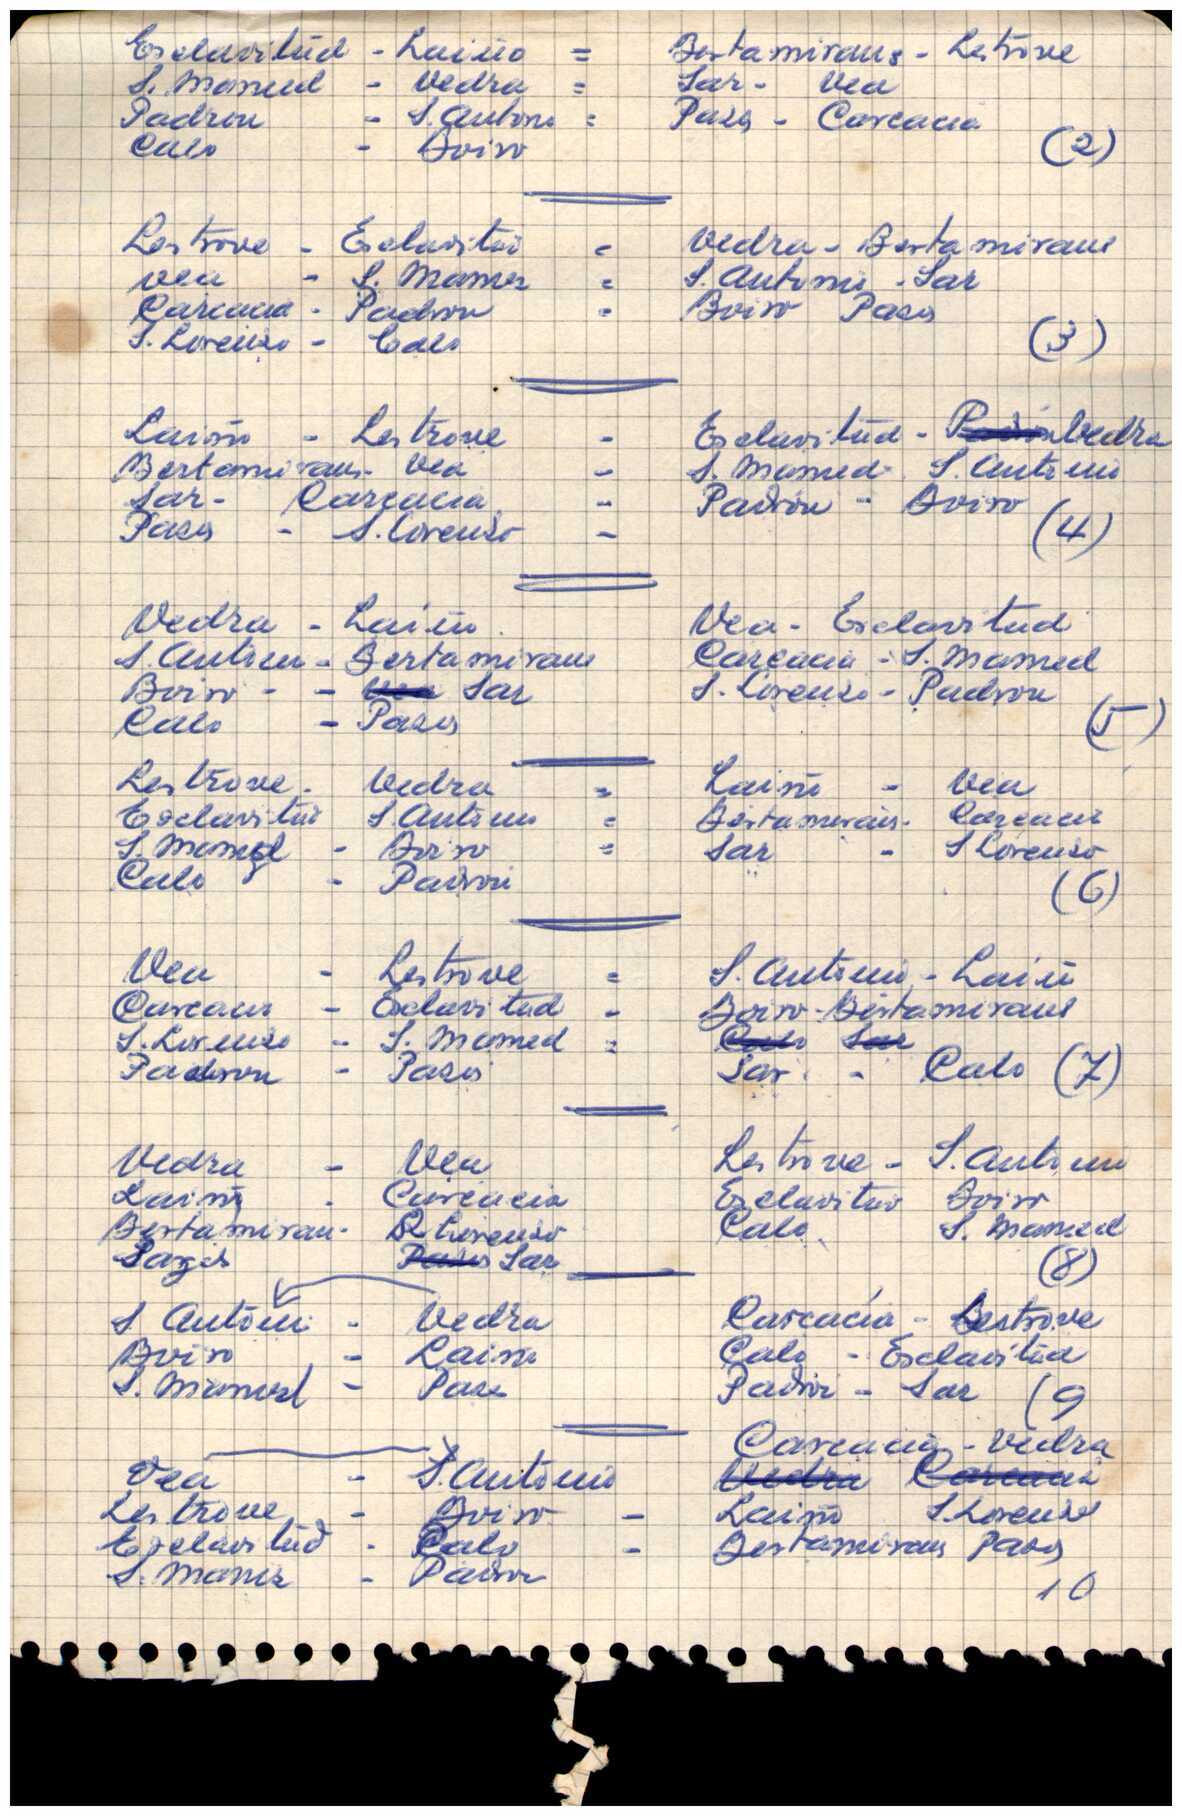 Esclavitud - Laiño = Bertamirans - Lestrove
S. Mamed - Vedra = Sar - Vea
Padron - S. Antonio = Pazos - Carcacia
Calo - Boiro (2)
Lestrove - Esclavitud = Vedra - Bertamirans
Vea - S. Mamed = S. Antonio - Sar
Carcacia - Padron = Boiro Pazos
S. Lorenzo - Calo (3)
Laiño - Lestrove - Esclavitud - Vedra
Bertamirans - Vea - S. Mamed - S. Antonio
Sar - Carcacia - Padron - Boiro
Pazos - S. Lorenzo - (4)
Vedra - Laiño Vea - Esclavitud
S. Antonio - Bertamirans Carcacia - S. Mamed
Boiro - - Vea Sar S. Lorenzo - Padron
Calo - Pazos (5)
Lestrove - Vedra = Laiño - Vea
Esclavitud S. Antonio = Bertamirans - Carcacia
S. Mamed - Boiro = Sar - S Lorenzo
Calo - Padron (6)
Vea - Lestrove = S. Antonio - Laiño
Carcacia - Esclavitud = Boiro - Bertamirans
S. Lorenzo - S. Mamed = Calo Sar
Padron - Pazos Sar - Calo (7)
Vedra - Vea Lestrove - S. Antonio
Laiño - Carcacia Esclavitud Boiro
Bertamiran - S. Lorenzo Calo S. Mamed
Pazos Pazos Sar (8)
S Antonio - Vedra Carcacía - Lestrove
Boiro - Laiño Calo - Esclavitud
S. Mamed - Pazos Padron - Sar (9
Carcacia - Vedra
Vea - S. Antonio Vedra Carcacia
Lestrove - Boiro - Laiño S. Lorenzo
Esclavitud - Calo - Bertamirans Pazos
S. Mamed - Padron 10